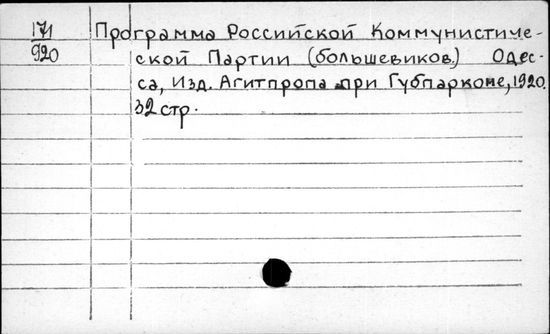 171
920
Программа Российской Коммунистиче-
ской Партии (большевиков) Одес-
са, Изд. Агитпропа при Губпаркоме, 1920.
32 стр.